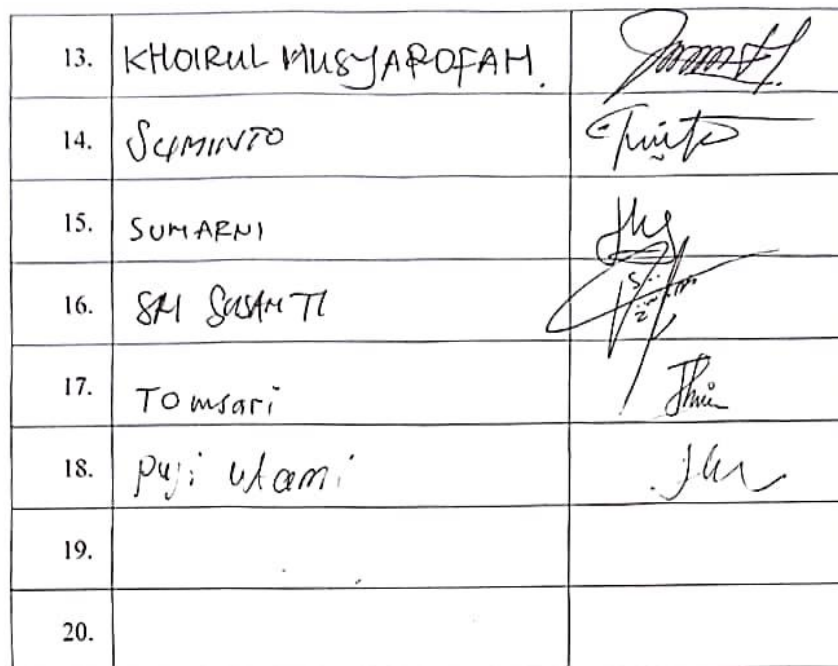 13. KHOIRUL MUSYAROFAH.
14. SUMINTO
15. SUMARNI
16. SRI SUSANTI
17. TOmsari
18. puji utami
19.
20.